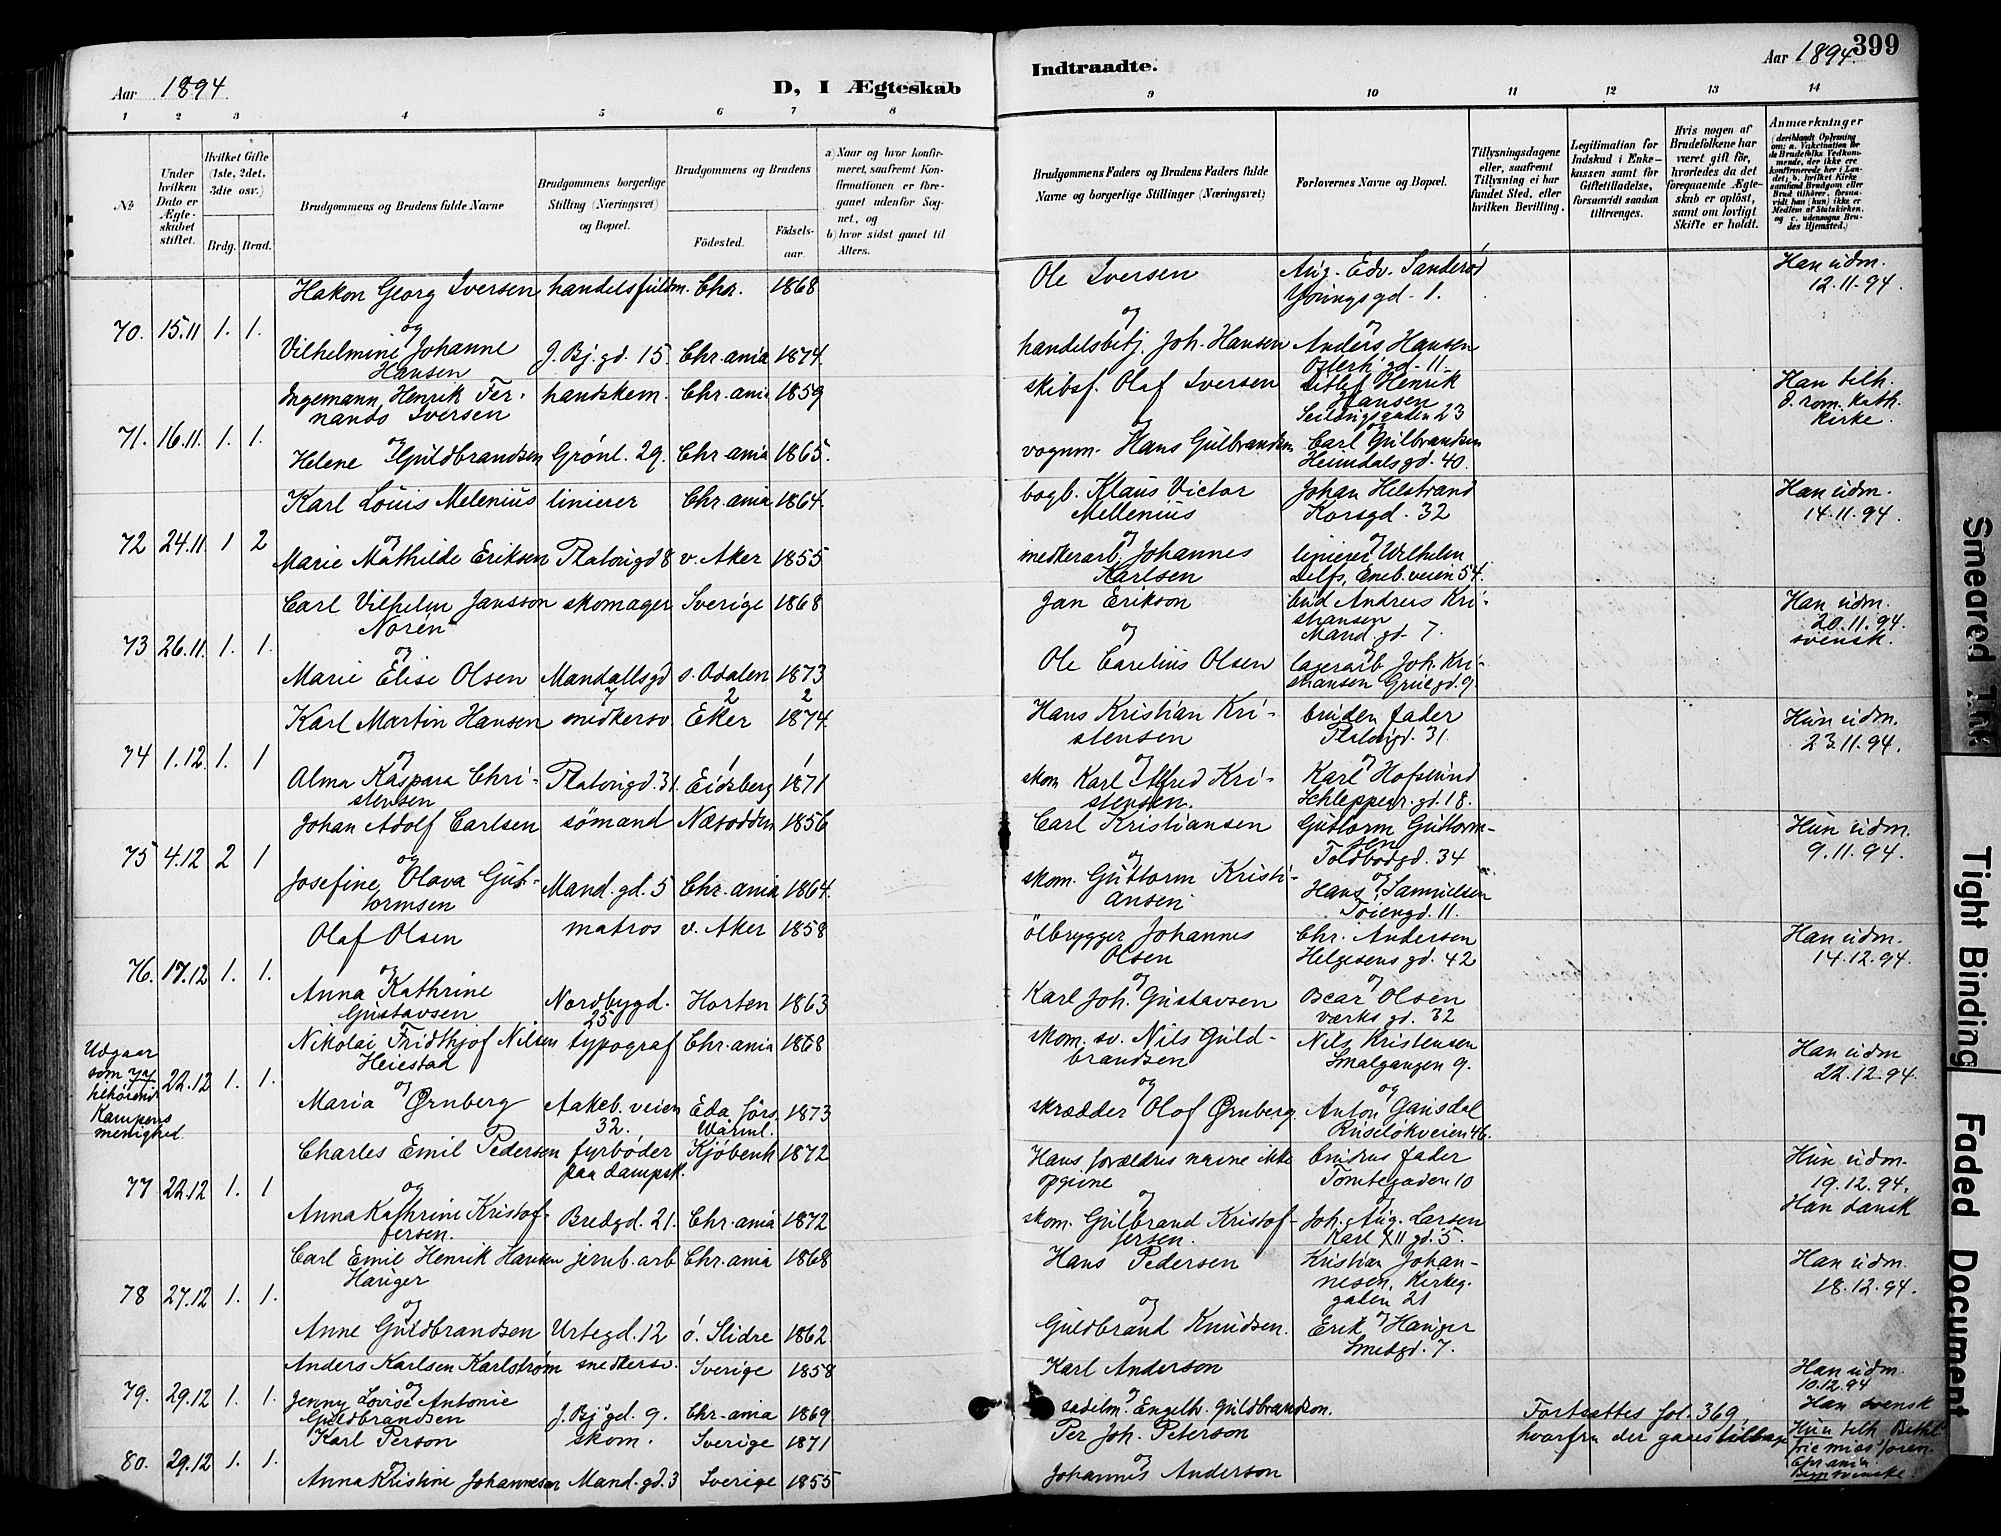 Aar 1894
D, I Ægteskab
Indtraadte.
Aar 1894.
399
1 2 3 4 5 6 7 8 9 10 11 12 13 14
№
Under hvilken Dato er Ægteskabet stiftet.
Hvilket Gifte (1ste, 2det, 3die osv.)
Brdg. Brud.
Brudgommens og Brudens fulde Navne
Brudgommens borgerlige Stilling (Næringsvei) og Bopæl.
Brudgommens og Brudens
Födested.
Födsels-aar.
a) Naar og hvor konfirmeret, saafremt Konfirmationen er foregaaet udenfor Sognet, og
b) hvor sidst gaaet til Alters.
Brudgommens Faders og Brudens Faders fulde Navne og borgerlige Stillinger (Næringsvei)
Forlovernes Navne og Bopæl.
Tillysningsdagene eller, saafremt Tillysning ei har fundet Sted, efter hvilken Bevilling.
Legitimation for Indskud i Enkekassen samt for Giftetilladelse, forsaavidt saadan tiltrænges.
Hvis nogen af Brudefolkene har været gift för, hvorledes da det foregaaende Ægteskab er oplöst, samt om lovligt Skifte er holdt.
Anmærkninger
(deriblandt Oplysning om: a. Vakcination for de Brudefolks Vedkommende, der ikke ere konfirmerede her i Landet, b. hvilket Kirkesamfund Brudgom eller Brud tilhörer, forsaavidt han (hun) ikke er Medlem af Statskirken, og c. udensogns Brudes Hjemsted.)
70. 15.11 1. 1.
Hakon Georg Iversen handelsfuldm. Chr. 1868
og
Vilhelmine Johanne Hansen J. Bj. gd. 15. Chr.ania 1874.
Ole Iversen
og
handelsbetj. Joh. Hansen
Aug. Edv. Sanderød
Youngsgd. 1.
og
Anders Hansen
Osterh. gd. 11.
Han udm.
12.11.94.
71. 16.11. 1. 1.
Ingemann Henrik Fernando Iversen handskem. Chr.ania 1859
og
Helene Guldbrandsen Grönl. 29. Chr.ania 1865.
skibsf. Olaf Iversen
og
vognm. Hans Gulbrandsen
Ditlef Henrik Hansen
23
og
Carl Gulbrandsen
Heimdalsgd. 40.
Han tilh.
d. rom. kath.
Kirke.
72 24.11 1 2
Karl Louis Melenius linierer Chr.ania 1864.
og
Marie Mathilde Eriksen Platousgd 8 v. Aker 1855
bogb. Klaus Victor
Mellenius
og
snedkerarb. Johannes
Karlsen
Johan Helstrand
Korsgd. 32
og
linierer Wilhelm
Delfs, Eneb.veien 54.
Han udm.
14.11.94.
73 26.11. 1. 1.
Carl Vilhelm Jansson Norén skomager Sverige 1868
og
Marie Elise Olsen Mandallsgd 7 s. Odalen 1873
Jan Erikson
og
Ole Carelius Olsen
bud Andreas Kristiansen
Mand. gd. 7.
og
lagerarb Joh. Kristiansen Gruegd. 9.
Han udm.
20.11.94.
svensk.
74 1.12. 1. 1
Karl Martin Hansen snedkersv. Eker 2 1874. 2
og
Alma Kaspara Christensen Platousgd. 31. Eidsberg 1 1871 1
Hans Kristian Kristensen
og
skom. Karl Alfred Kristensen.
brudens fader
Platousgd. 31.
og
Karl Hofslund
Schleppegr. gd. 18.
Hun udm.
23.11.94.
75 4.12 2 1
Johan Adolf Carlsen sömand Næsodden 1856
og
Josefine Olava Guttormsen Mand. gd. 5 Chr.ania 1864.
Carl Kristiansen
og
skom. Guttorm Kristiansen.
Guttorm Guttormsen
Toldbodgd. 34
og
Hans Samuelsen
Töiengd. 11.
Hun udm.
9.11.94.
76. 17.12 1. 1.
Olaf Olsen matros v. Aker 1858
og
Anna Kathrine Gustavsen Nordbygd. 25 Horten 1863
ölbrygger Johannes
Olsen
og
Karl Joh. Gustavsen
Chr. Andersen
Helgesens gd. 42
og
Oscar Olsen
Værksgd. 32
Han udm.
14.12.94.
Udgaar som 77 henhörende Kampens menighed. 22.12 1. 1.
Nikolai Fridthjof Nilsen Heiestad typograf Chr.ania 1868
og
Maria Ørnberg Aakeb. veien 32. Eda förs. Wärml. 1873
skom. sv. Nils Guldbrandsen
og
skrædder Olof Ørnberg.
Nils Kristensen
Smalgangen 9.
og
Anton Gausdal
Ruselökveien 46.
Han udm
22.12.94.
77 22.12 1. 1
Charles Emil Pedersen fyrböder paa dampsk. Kjöbenh 1872
og
Anna Kathrine Kristoffersen. Bredgd. 21. Chr.ania 1872
Hans forældres navne ikke
opgivne
og
skom. Gulbrand Kristoffersen.
brudens fader
Tomtegaden 10
og
Joh. Aug. Larsen
Karl XII gd. 5.
Hun udm.
19.12.94.
Han dansk
78 27.12 1. 1.
Carl Emil Henrik Hansen Hauger jernb. arb Chr.ania 1868
og
Anne Guldbrandsen Urtegd. 12 ö. Slidre 1862
Hans Pedersen
og
Guldbrand Knudsen.
Kristian Johannesen, Kirkeg
gaden 21
og
Erik Hauger
Smedgd. 7.
Han udm.
18.12.94.
79. 29.12 1. 1.
Anders Karlsen Karlström snedkersv. Sverige 1858
og
Jenny Lovise Antonie Guldbrandsen J. Bj. gd. 9. Chr.ania 1869
Karl Anderson
og
sadelm. Engelh. Guldbrandsen.
Han udm.
10.12.94
Han svensk
80. 29.12 1. 1.
Karl Person skom. Sverige 1871
og
Anna Kristine Johannesen Mand. gd. 3 Sverige 1855
Per Joh. Peterson
og
Johannes Anderson
Fortsættes fol. 369,
hvorfra der gaaes tilbage
Hun tilh. Bethl.
frie miss. foren.
Chr.ania
Begge svenske.
Smeared Ink
Tight Binding
Faded Document